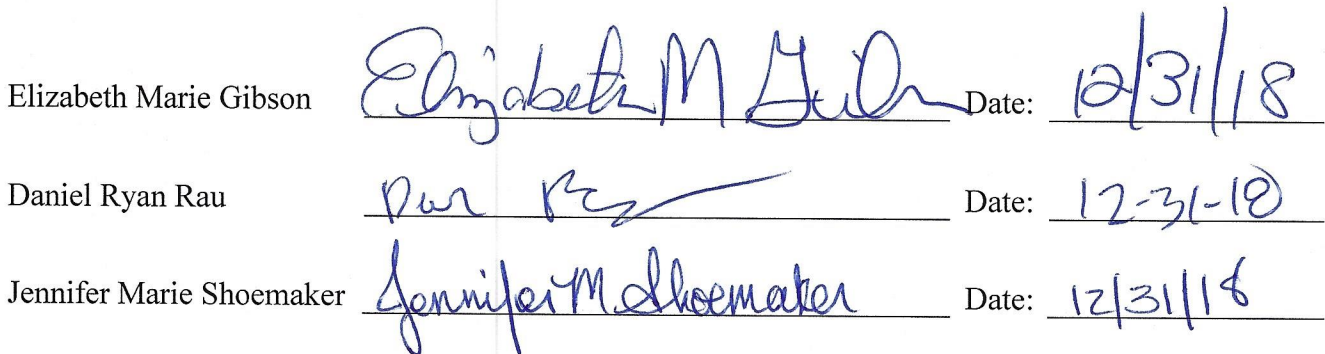 Elizabeth Marie Gibson Elizabeth M Gibson Date: 12/31/18
Daniel Ryan Rau Dan R Date: 12-31-18
Jennifer Marie Shoemaker Jennifer M. Shoemaker Date: 12/31/18